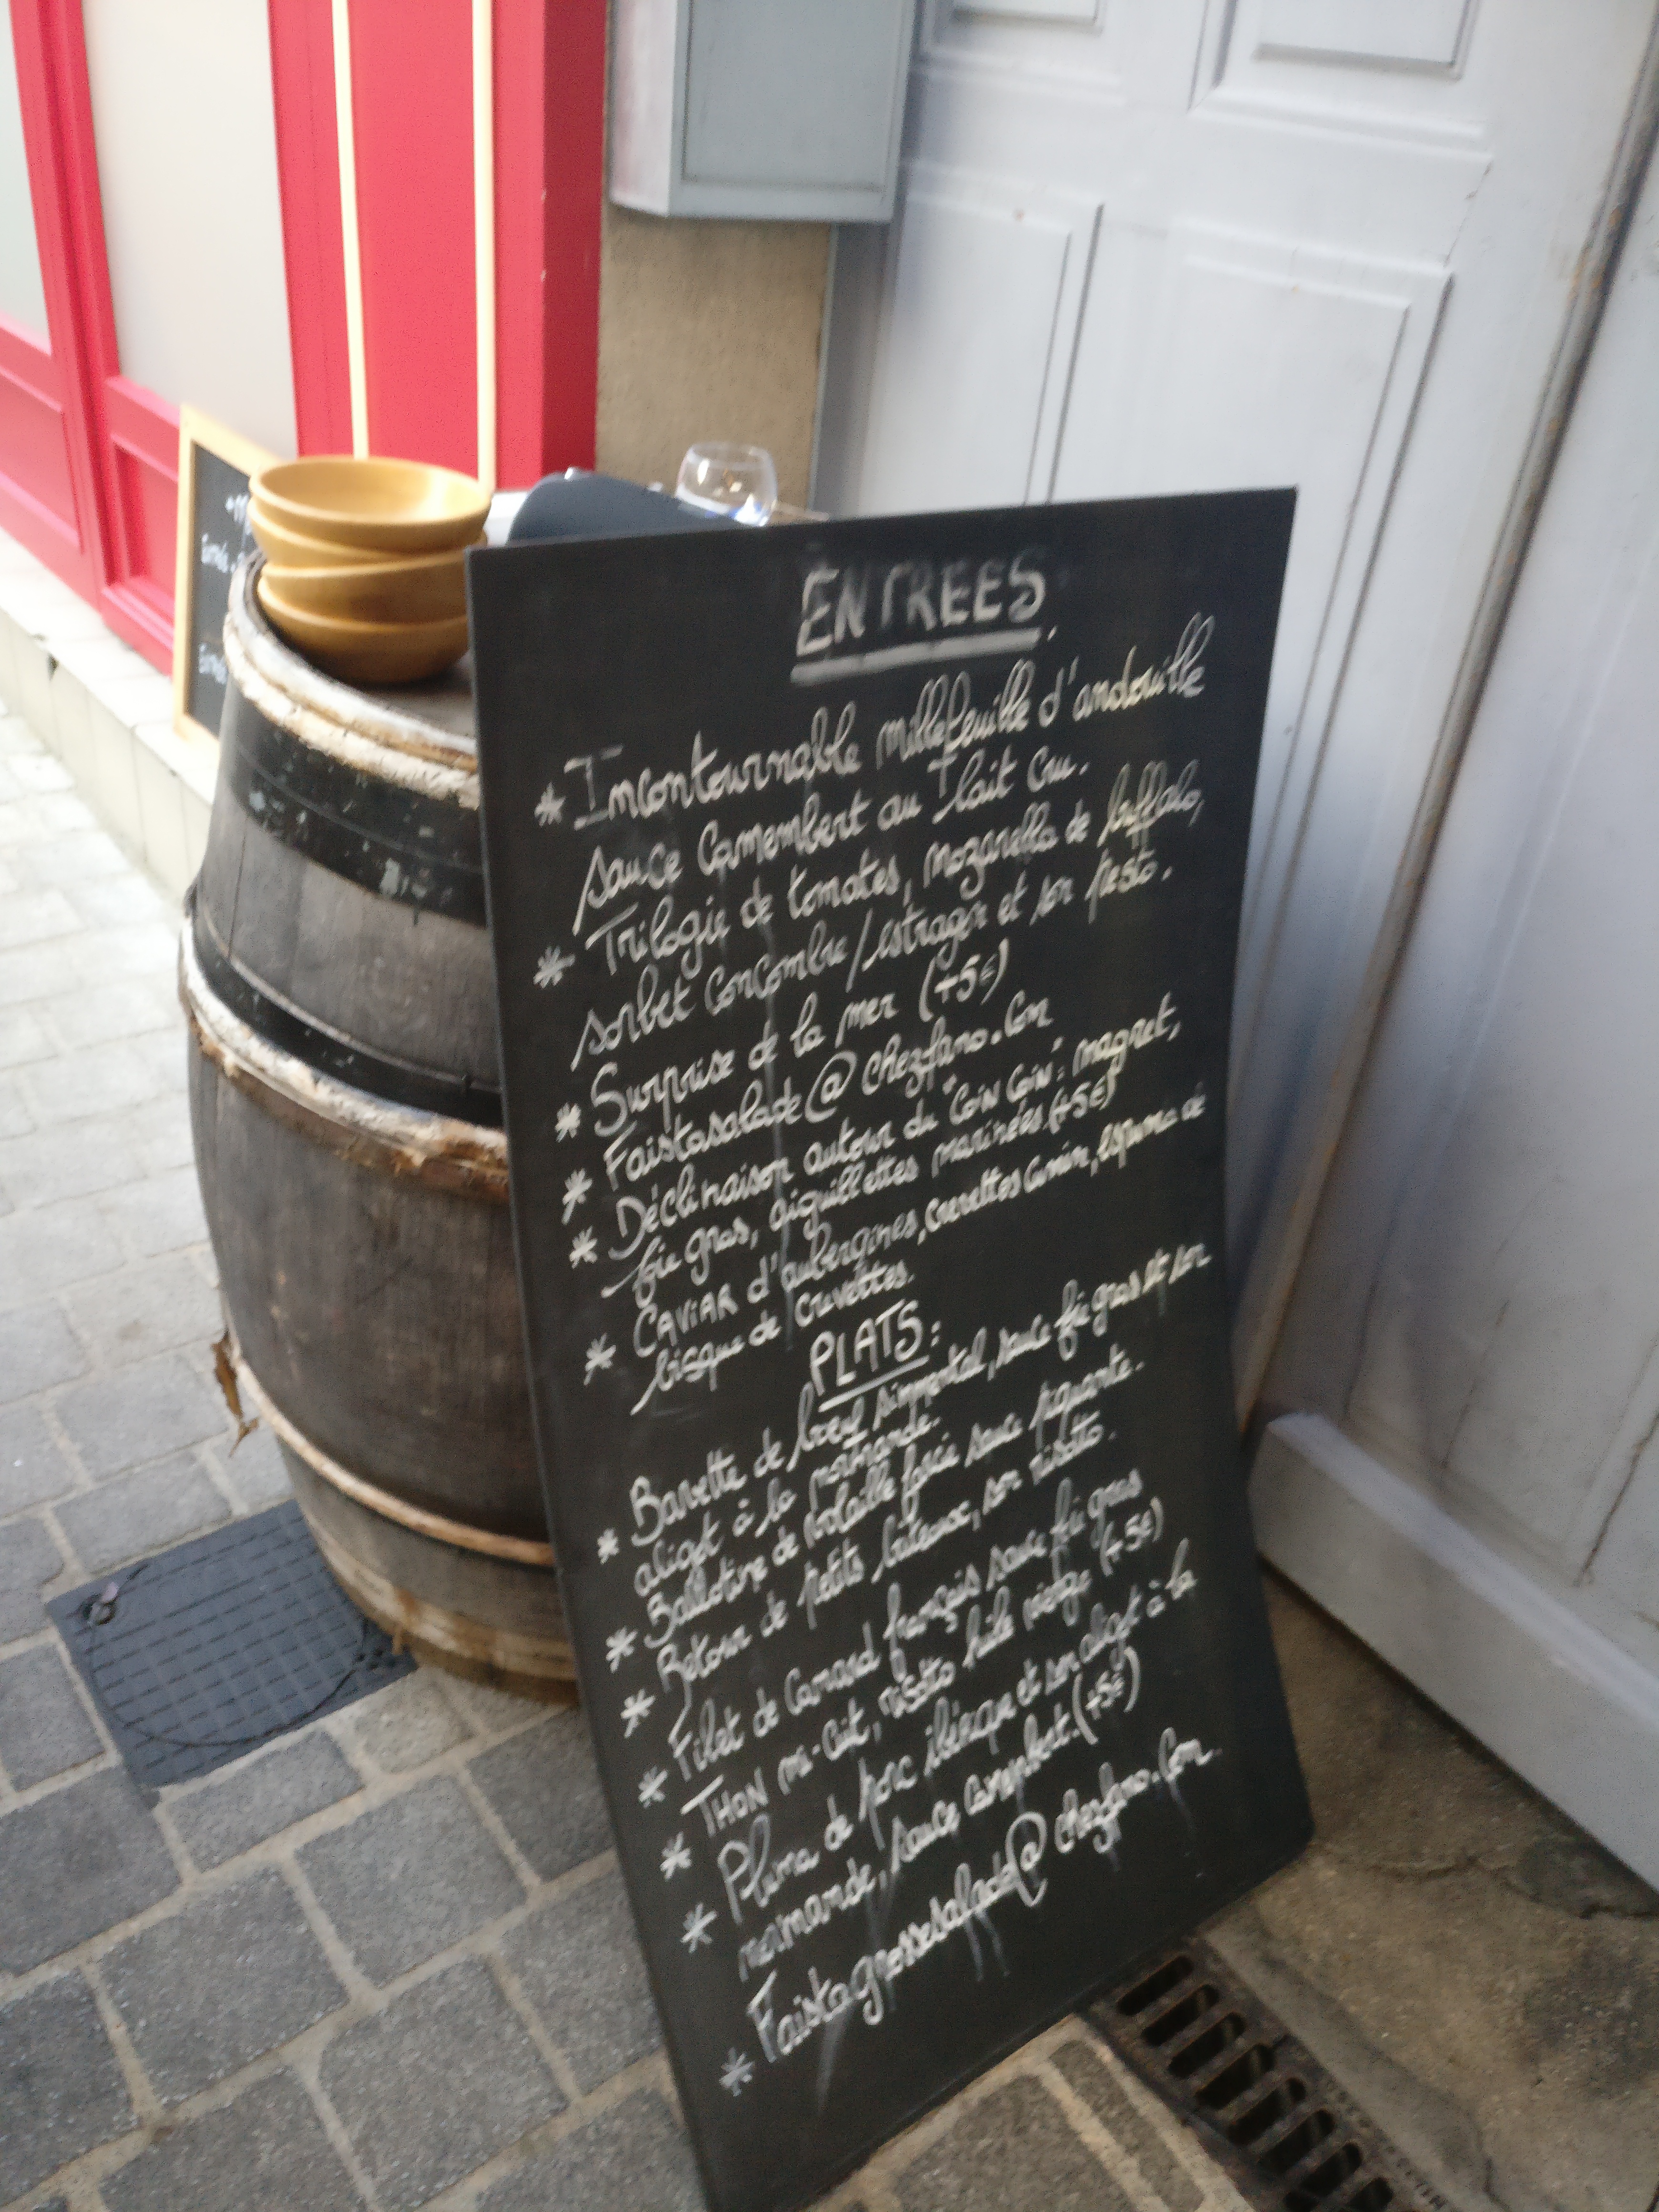 ENTREES
* Incontournable millefeuille d'andouille
sauce Camembert au lait Cru.
* Trilogie de tomates, mozarella de buffala,
sorbet concombre/estragon et son pesto.
* Surprise de la mer (+5€)
* Faistasalade@chezfano.Com
* Déclinaison autour du "Coin Coin": magret,
foie gras, aiguillettes marinées (+5€)
* CAVIAR d'aubergines, crevettes Cumin, espuma de
bisque de crevettes.
PLATS:
* Bavette de boeuf simmental, sauce foie gras et son
aligot à la normande.
* Ballotine de volaille farcie sauce piquante.
* Retour de petits bateaux, son risotto.
* Filet de Canard français sauce foie gras
* THON mi-Cuit, risotto huile vierge (+5€)
* Pluma de porc ibérique et son aligot à la
normande, sauce Camembert. (+5€)
* Faistagrossesalade@chezfano.Com.